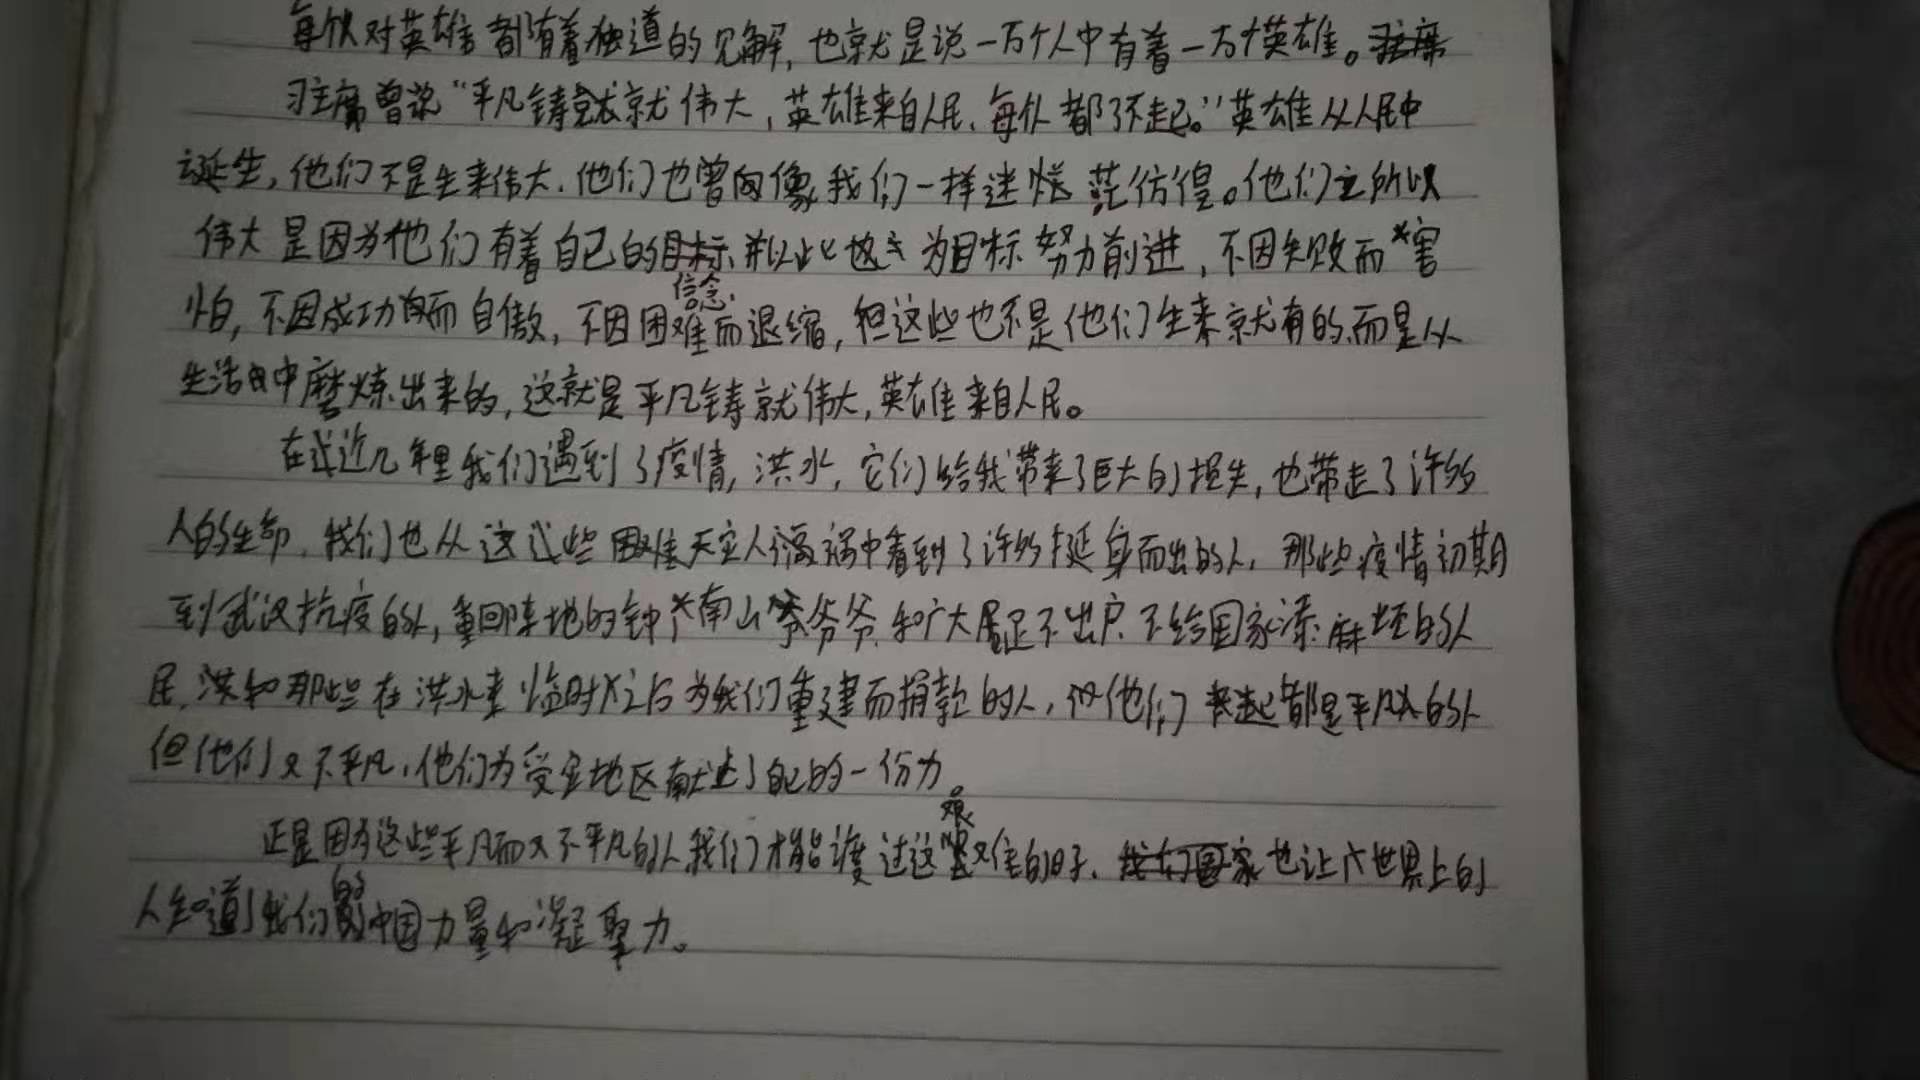 每个人对英雄都有着独道的见解，也就是说一万个人中有着一万个英雄。
习主席曾说“平凡铸就伟大，英雄来自人民，每个人都了不起。”英雄从人民中
诞生，他们不是生来伟大，他们也曾向像我们一样迷茫彷徨。他们之所以
伟大是因为他们有着自己的信念，并以此为目标努力前进，不因失败而害
怕，不因成功而自傲，不因困难而退缩，但这些也不是他们生来就有的，而是从
生活中磨炼出来的，这就是平凡铸就伟大，英雄来自人民。
在近几年里我们遇到了疫情，洪水，它们给我带来了巨大的损失，也带走了许多
人的生命，我们也从这些天灾人祸中看到了许多挺身而出的人，那些疫情初期
到武汉抗疫的人，重回阵地的钟南山爷爷，和广大足不出户不给国家添麻烦的人
民，和那些在洪水来临时之后为我们重建而捐款的人，他们都是平凡的人
但他们又不平凡，他们为受灾地区献出了自己的一份力。
正是因为这些平凡而又不平凡的人我们才能度过这艰难的日子，也让世界上的
人知道了我们的中国力量和凝聚力。